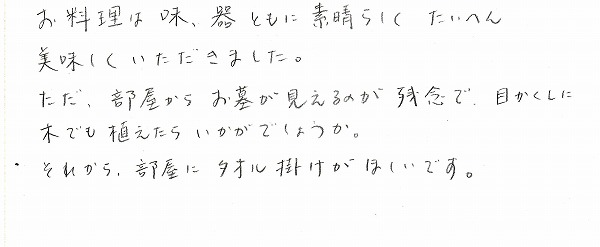 お料理は味、器ともに素晴らしく たいへん
美味しくいただきました。
ただ、部屋からお墓が見えるのが残念で、目かくしに
木でも植えたらいかがでしょうか。
・それから、部屋にタオル掛けがほしいです。